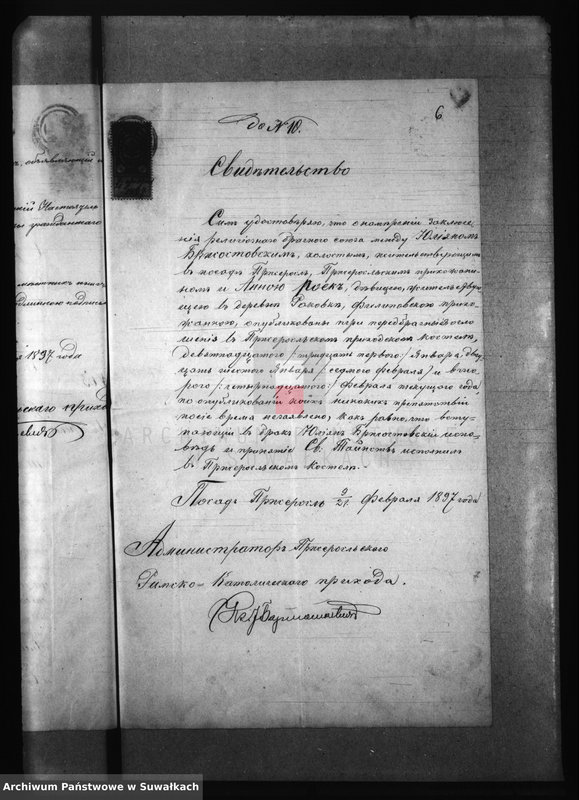 6
до N 10.
Свидѣтельство
Симъ удостовѣряю, что о намѣреніи заключе-
нія религіознаго брачнаго союза между Юліяномъ
Бржостовскимъ, холостымъ, жительствующимъ
въ посадѣ Пржеросль, Пржеросльскимъ прихожани-
номъ и Анною Роекъ, дѣвицею, жительствую-
щею въ деревнѣ Раковкѣ, Филиповскою прихо-
жанкою, опубликованы три предбрачныя оглa-
шенія въ Пржеросльскомъ приходскомъ костелѣ,
Девятнадцатаго (тридцать перваго) Января, два-
дцать шестаго Января (седьмаго февраля) и вто-
раго (четырнадцатаго) февраля текущаго года
по опубликованіи коихъ никакихъ препятствій
по сіе время не заявлено, какъ равно, что всту-
пающій въ бракъ Юліянъ Бржостовскій испо-
вѣдь и принятіе Св. Таинствъ исполнилъ
въ Пржеросльскомъ костелѣ.
Посадъ Пржеросль 9/21 Февраля 1897 года
Администраторъ Пржеросльскаго
Римско-Католическаго прихода.
объявляющій
Настоящаго
гражданскаго
подпись
1897 года
скаго прихода
Archiwum Państwowe w Suwałkach